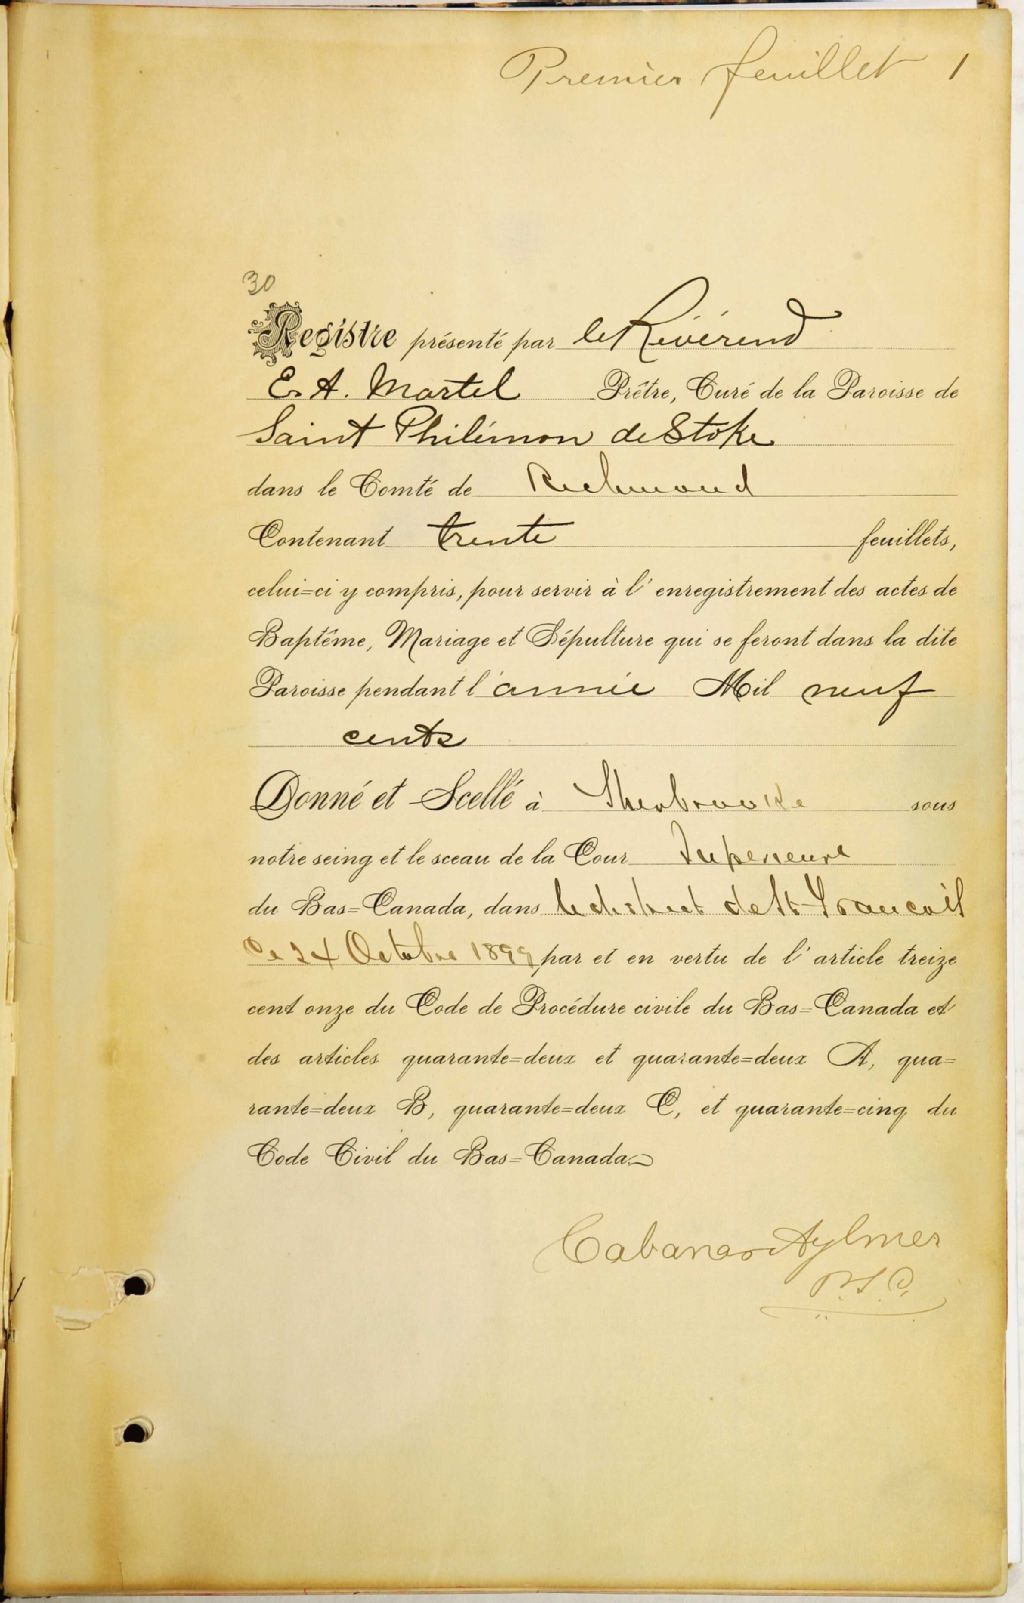 Premier feuillet 1
30
Registre présenté par le Révérend
E. A. Martel Prêtre, Curé de la Paroisse de
Saint Philémon de Stoke
dans le Comté de Richmond
Contenant trente feuillets,
celui=ci y compris, pour servir à l' enregistrement des actes de
Baptême, Mariage et Sépulture qui se feront dans la dite
Paroisse pendant l'année Mil neuf
cents
Donné et Scellé à Sherbrooke sous
notre seing et le sceau de la Cour Superieure
du Bas=Canada, dans le district de St-Francois
Ce 24 Octobre 1899 par et en vertu de l' article treize
cent onze du Code de Procédure civile du Bas=Canada et
des articles quarante=deux et quarante=deux A, qua=
rante=deux B, quarante=deux C, et quarante=cinq du
Code Civil du Bas=Canada.
Cabana & Aylmer
P.S.C.